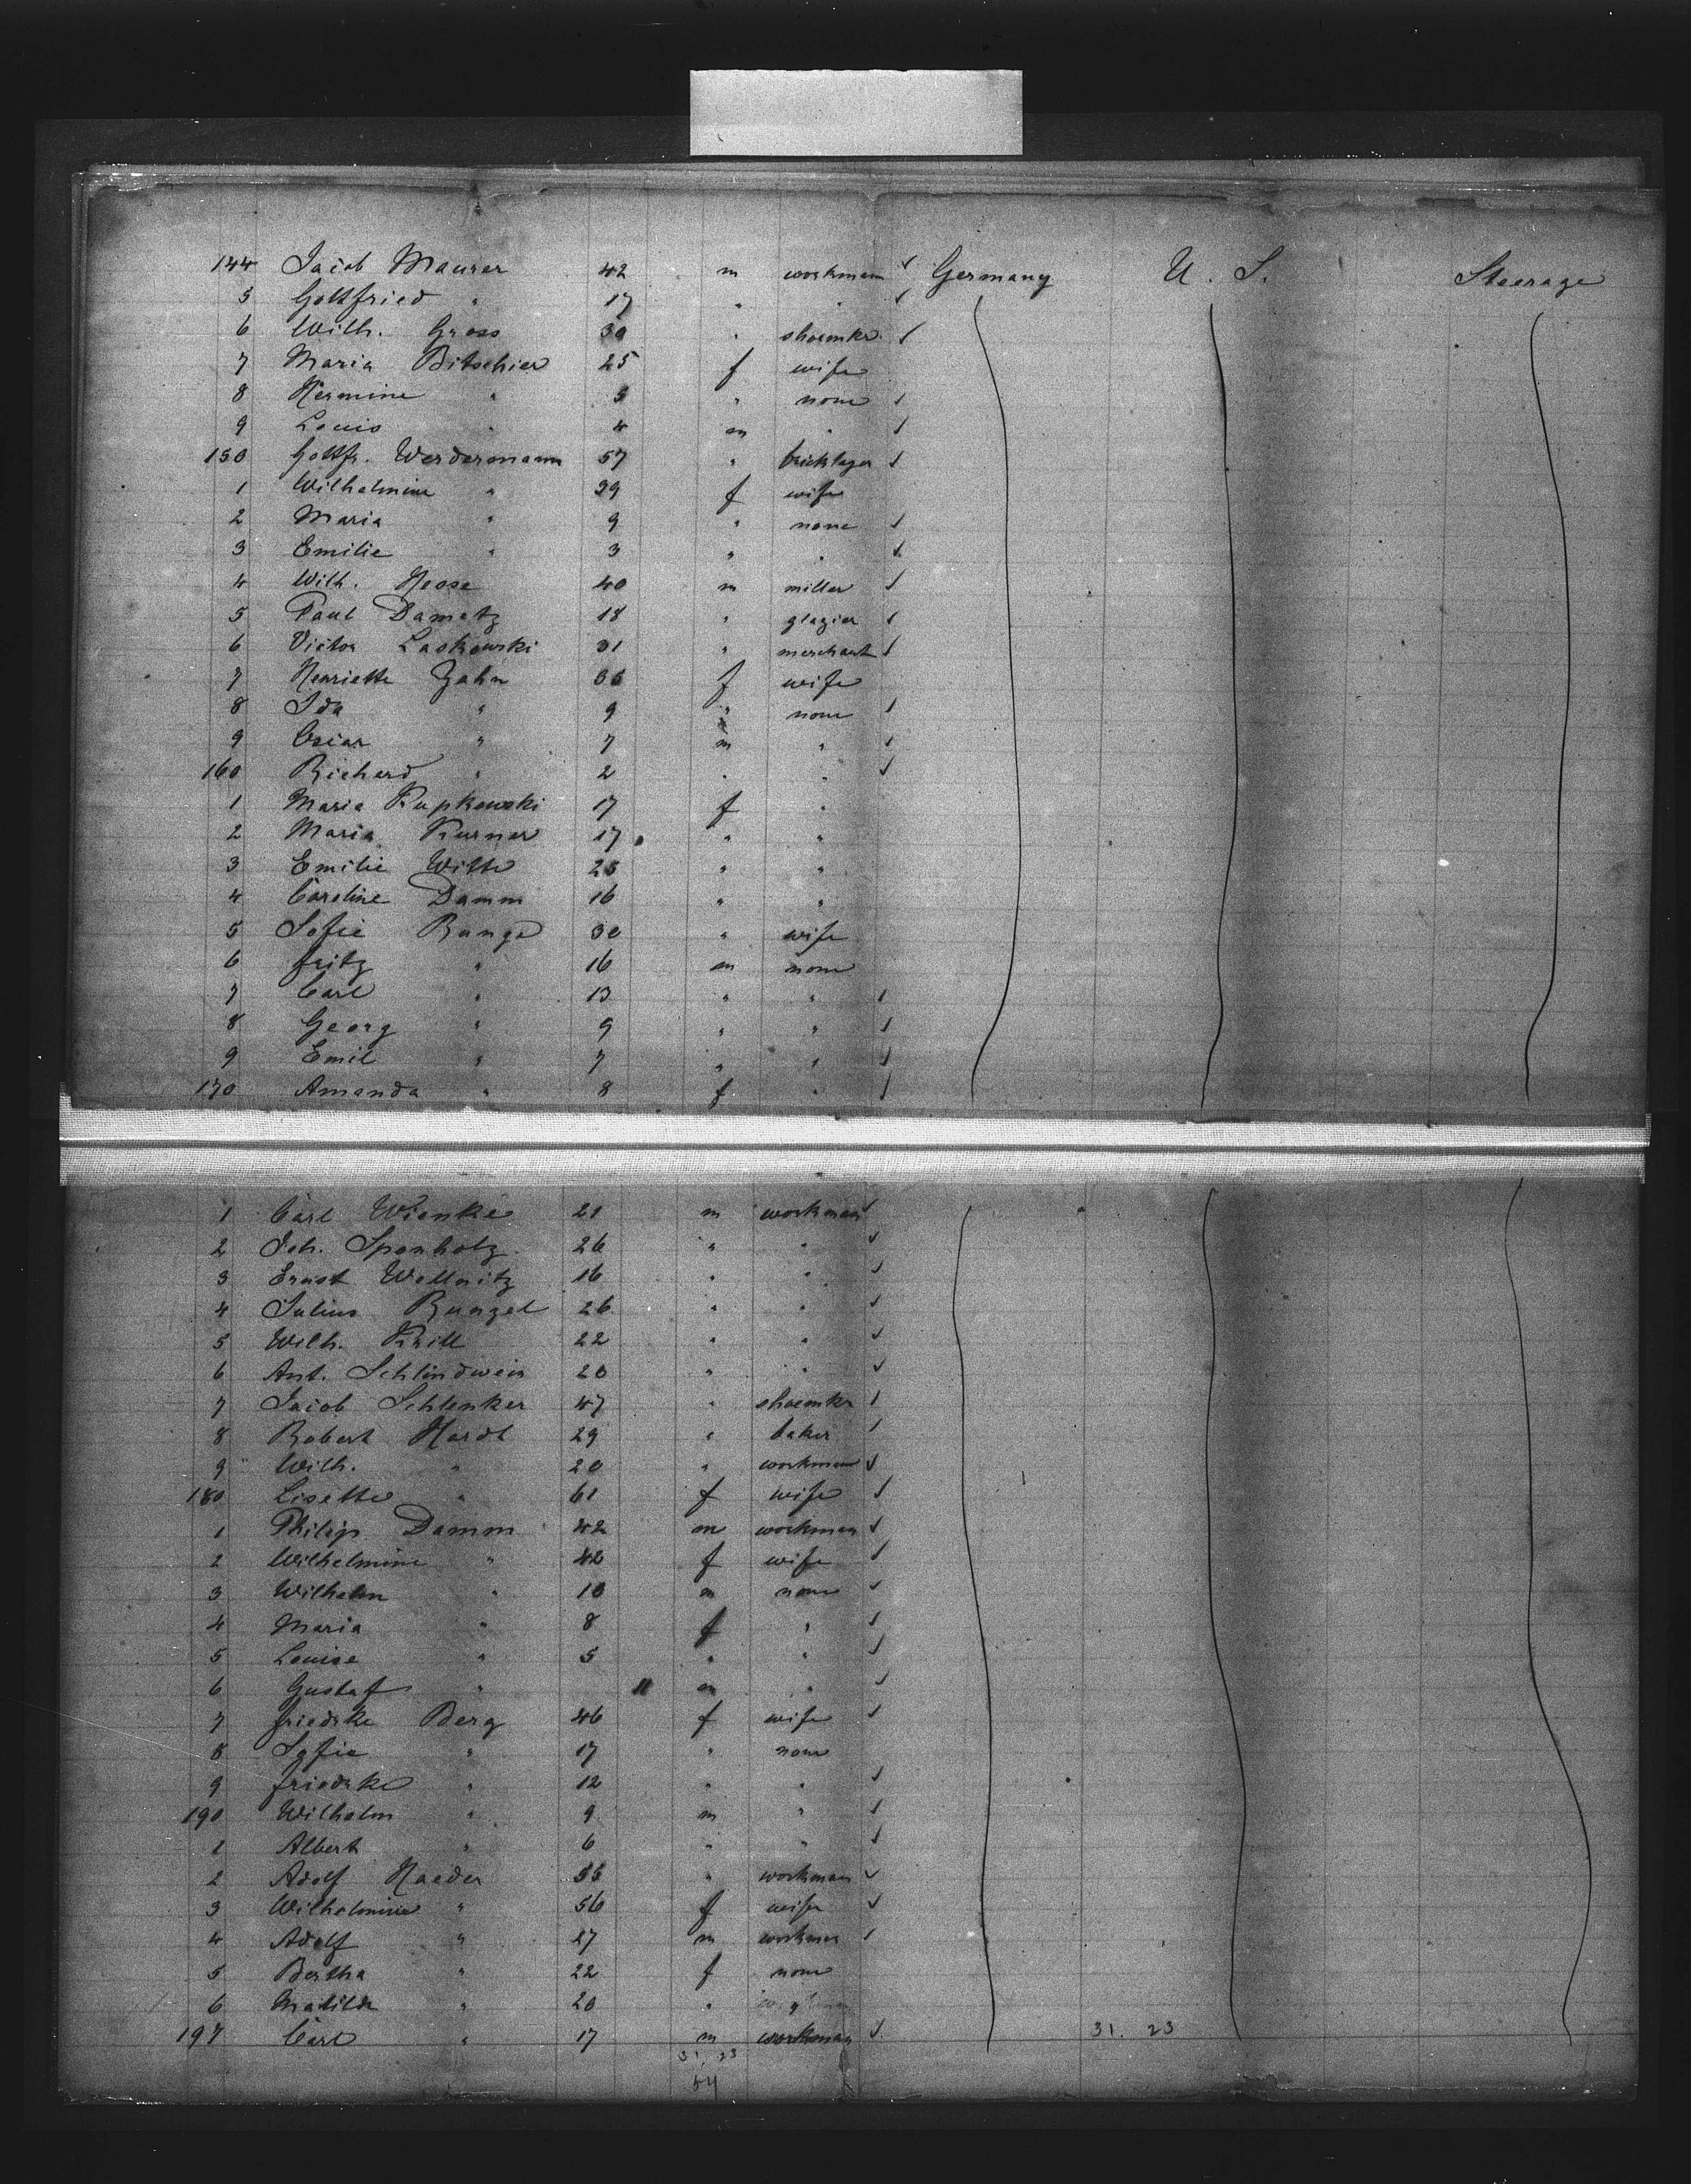 144 Jacob Maurer 42 m workman ✓ Germany U. S. Steerage
5 Gottfried " 17 " " ✓
6 Wilh. Gross 30 " shoemkr. ✓
7 Maria Bitschier 25 f wife
8 Hermine " 5 " none ✓
9 Louis " 4 m " ✓
150 Gottfr. Werdermann 57 " bricklayer ✓
1 Wilhelmine " 39 f wife
2 Maria " 9 " none ✓
3 Emilie " 3 " " ✓
4 Wilh. Hesse 40 m miller ✓
5 Paul Dametz 18 " glazier ✓
6 Victor Laskowski 31 " merchant ✓
7 Henriette Zahn 35 f wife
8 Ida " 9 " none ✓
9 Oscar " 7 m " ✓
160 Richard " 2 " " ✓
1 Maria Kupkowski 17 f "
2 Maria Kurner 17 " "
3 Emilie Witte 25 " "
4 Caroline Damm 16 " "
5 Sofie Runge 30 " wife
6 Fritz " 16 m none
7 Carl " 13 " " ✓
8 Georg " 9 " " ✓
9 Emil " 7 " " ✓
170 Amanda " 8 f " ✓
1 Carl Wienke 21 m workman ✓
2 Joh. Sponholz 26 " " ✓
3 Ernst Wollnitz 16 " " ✓
4 Julius Runzel 26 " " ✓
5 Wilh. Krill 22 " " ✓
6 Ant. Schlindwein 20 " " ✓
7 Jacob Schlenker 47 " shoemkr ✓
8 Robert Hardt 29 " baker ✓
9 Wilh. " 20 " workman ✓
180 Lisette " 61 f wife ✓
1 Philip Damm 42 m workman ✓
2 Wilhelmine " 42 f wife ✓
3 Wilhelm " 10 m none ✓
4 Maria " 8 f " ✓
5 Louise " 5 " " ✓
6 Gustaf " 11 m " ✓
7 Friedrke Berg 46 f wife ✓
8 Sofie " 17 " none
9 Friedrke " 12 " " ✓
190 Wilhelm " 9 m " ✓
1 Albert " 6 " " ✓
2 Adolf Haeder 55 " workman ✓
3 Wilhelmine " 56 f wife ✓
4 Adolf " 27 m workman ✓
5 Bertha " 22 f none
6 Matilde " 20 " "
197 Carl " 17 m workman ✓ 31. 23
31. 23
54